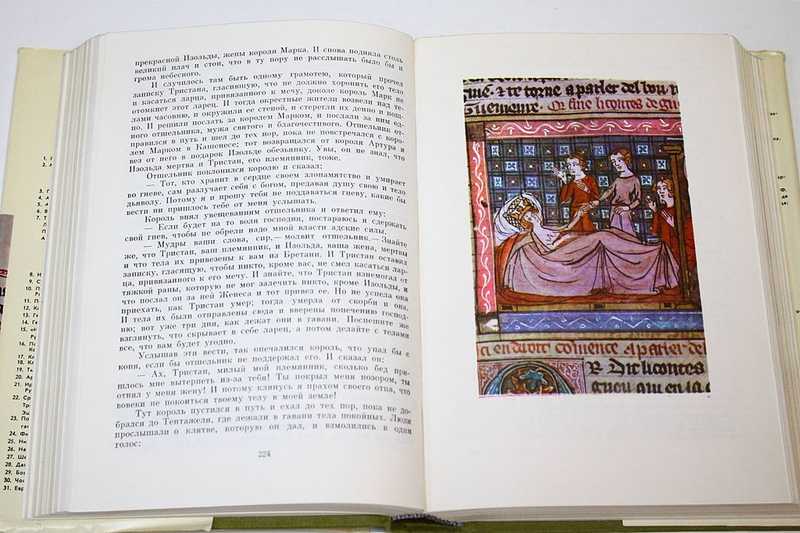 прекрасной Изольды, жены короля Марка. И снова подняла столь
великий плач и стон, что в ту пору не расслышать было бы и
грома небесного.
И случилось там быть одному грамотею, который прочел
записку Тристана, гласившую, что не должно хоронить его тело
и касаться ларца, привязанного к мечу, доколе король Марк не
отомкнет этот ларец. И тогда окрестные жители возвели над те-
лами часовню, и окружили ее стеной, и стерегли их денно и нощ-
но. И решили послать за королем Марком, и послали за ним од-
ного отшельника, мужа святого и благочестивого. Отшельник от-
правился в путь и шел до тех пор, пока не повстречался с коро-
лем Марком в Кашонесе; тот возвращался от короля Артура и
вез от него в подарок Изольде обезьянку. Увы, он не знал, что
Изольда мертва и Тристан, его племянник, тоже.
Отшельник поклонился королю и сказал:
— Тот, кто хранит в сердце своем злопамятство и умирает
во гневе, сам разлучает себя с богом, предавая душу свою и тело
дьяволу. Потому я и прошу тебя не поддаваться гневу, какие бы
вести ни пришлось тебе от меня услышать.
Король внял увещеваниям отшельника и ответил ему:
— Если будет на то воля господня, постараюсь я сдержать
свой гнев, чтобы не обрели надо мной власти адские силы.
— Мудры ваши слова, сир,— молвит отшельник.— Знайте
же, что Тристан, ваш племянник, и Изольда, ваша жена, мертвы
и что тела их привезены к вам из Бретани. И Тристан оставил
записку, гласящую, чтобы никто, кроме вас, не смел касаться лар-
ца, привязанного к его мечу. И знайте, что Тристан изнемогал от
тяжкой раны, которую не мог залечить никто, кроме Изольды, и
что послал он за ней Женеса и тот привез ее. Но не успела она
приехать, как Тристан умер; тогда умерла от скорби и она.
И тела их были отправлены сюда и вверены попечению господ-
ню; вот уже три дня, как лежат они в гавани. Поспешите же
взглянуть, что скрывает в себе ларец, а потом делайте с телами
все, что вам будет угодно.
Услышав эти вести, так опечалился король, что упал бы с
коня, если бы отшельник не поддержал его. И сказал он:
— Ах, Тристан, милый мой племянник, сколько бед при-
шлось мне вытерпеть из-за тебя! Ты покрыл меня позором, ты
отнял у меня жену! И потому клянусь я прахом своего отца, что
вовеки не покоиться твоему телу в моей земле!
Тут король пустился в путь и ехал до тех пор, пока не до-
брался до Тентажеля, где лежали в гавани тела покойных. Люди
прослышали о клятве, которую он дал, и взмолились в один
голос:
224
24. Фи
25. Ни
26. На
27. Ше
28. Да
29. Бо
30. Чо
31. Евр